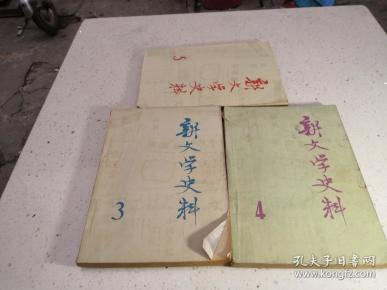 新文学史料
5
新文学史料
3
新文学史料
4
孔夫子旧书网